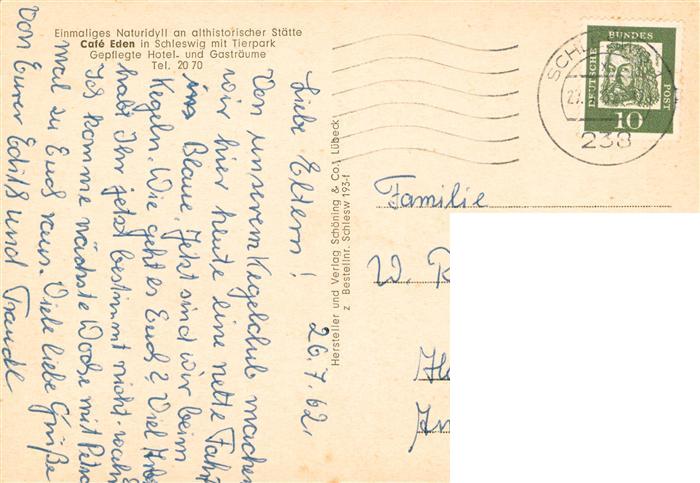 Einmaliges Naturidyll an althistorischer Stätte
Café Eden in Schleswig mit Tierpark
Gepflegte Hotel- und Gasträume
Tel. 20 70
26.7.62,
Liebe Eltern!
Von unserem Kegelclub machen
wir hier heute eine nette Fahrt
ins Blaue. Jetzt sind wir beim
Kegeln. Wie geht es Euch? Viel
habt Ihr jetzt bestimmt nicht
Ich komme nächste Woche mit
mal zu Euch raus. Viele liebe Grüße
von Eurer Edith und Traudl
Hersteller und Verlag Schöning & Co., Lübeck
z Bestellnr. Schlesw 193-1
DEUTSCHE
BUNDES
POST
10
SCHL
238
Familie
W.